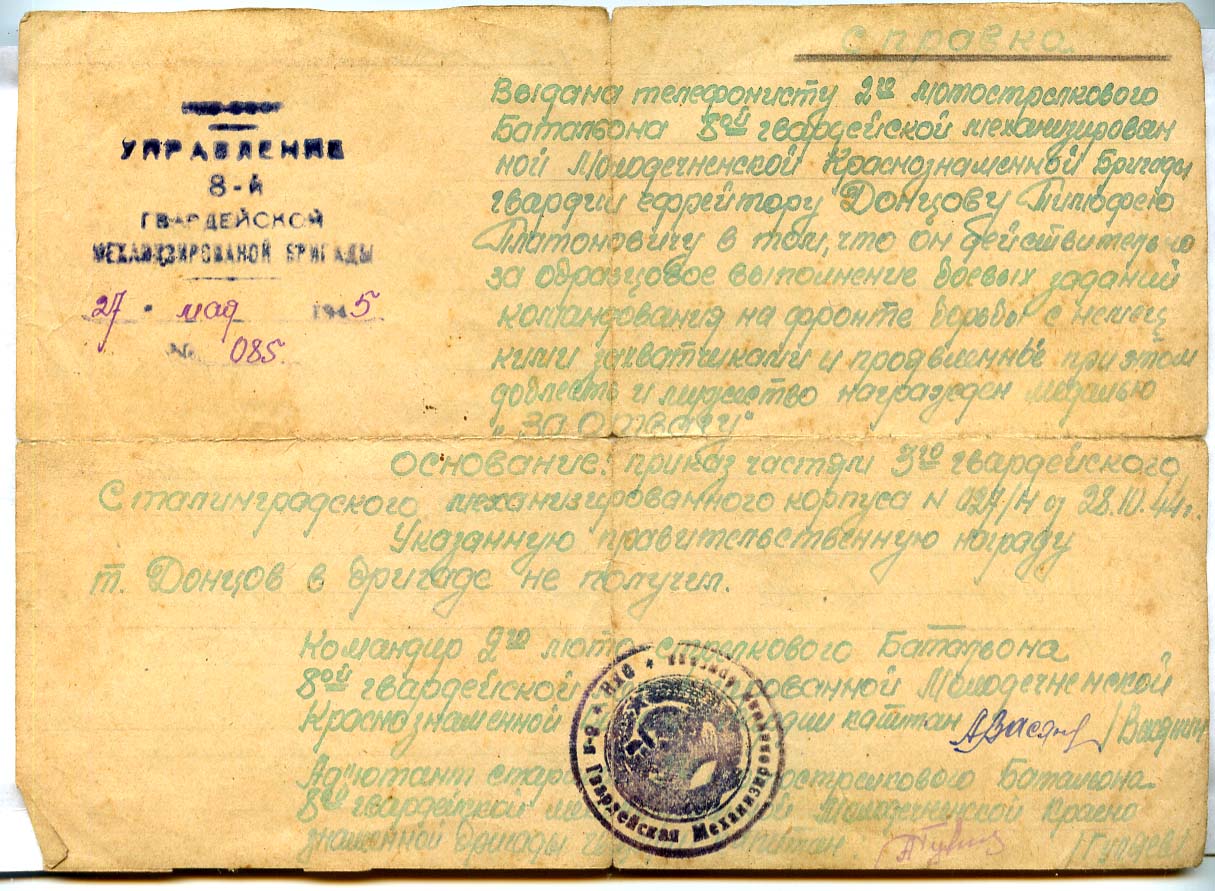 Справка
УПРАВЛЕНИЕ
8-й
ГВАРДЕЙСКОЙ
МЕХАНИЗИРОВАНОЙ БРИГАДЫ
27 мая 1945
№ 085.
Выдана телефонисту 2го мотострелкового
Батальона 8ой гвардейской механизирован
ной Молодечненской Краснознаменной Бригады
гвардии ефрейтору Донцову Тимофею
Платоновичу в том, что он действительно
за образцовое выполнение боевых заданий
командования на фронте борьбы с немец
кими захватчиками и проявленные при этом
доблесть и мужество награжден медалью
"За отвагу"
Основание: приказ частям 3го гвардейского
Сталинградского механизированного корпуса N 027/Н от 28.10.44г.
Указанную правительственную награду
т. Донцов в бригаде не получил.
Командир 2го мото стрелкового Батальона
8ой гвардейской Молодечненской
Краснознаменной капитан
Ад"ютант Батальона
8ой гвардейской Молодечненской Красно
знаменной бригады капитан
Гвардейская Механизированная